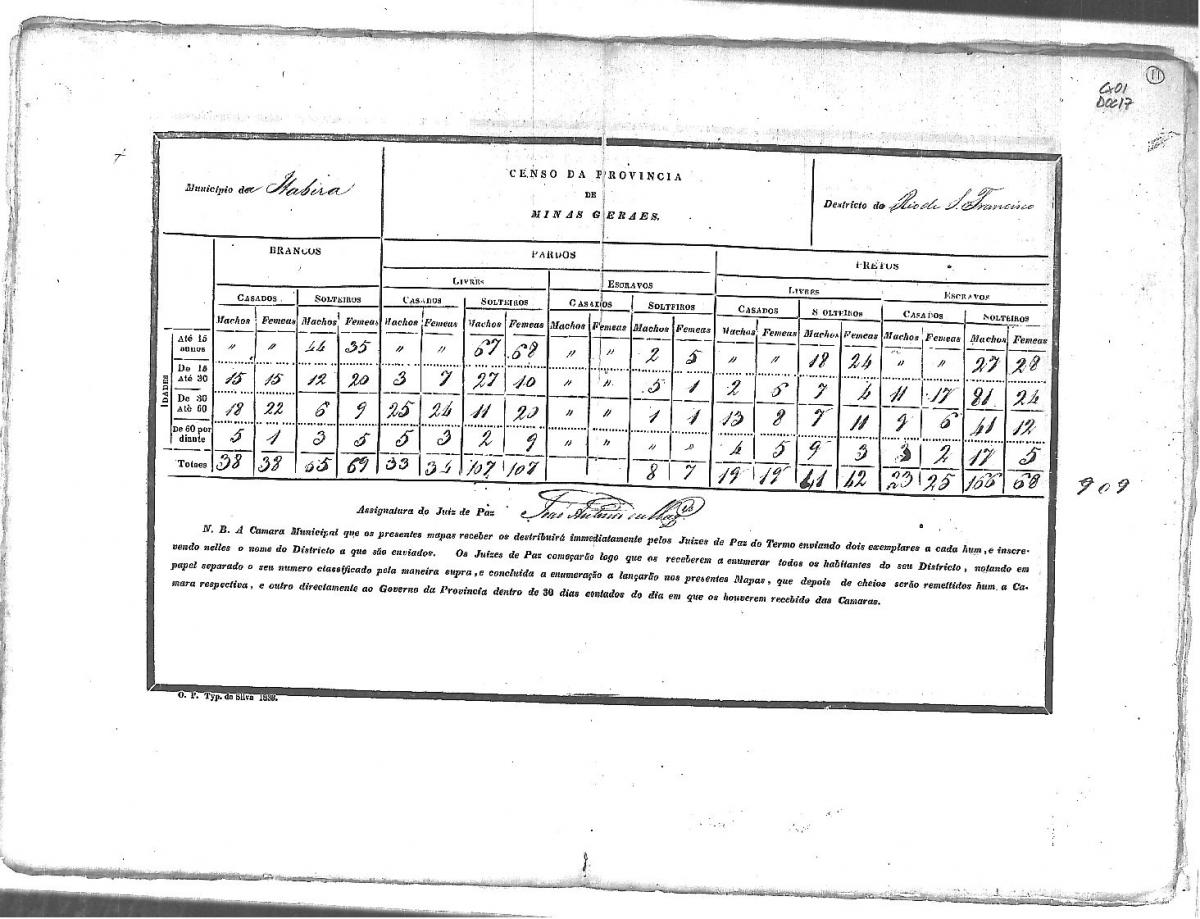 11
CX01
Doc17
Municipio da Itabira
CENSO DA PROVINCIA
DE
MINAS GERAES.
Destricto do Rio de S. Francisco
BRANCOS PARDOS PRETOS
LIVRES ESCRAVOS LIVRES ESCRAVOS
CASADOS SOLTEIROS CASADOS SOLTEIROS CASADOS SOLTEIROS CASADOS SOLTEIROS CASADOS SOLTEIROS
Machos Femeas Machos Femeas Machos Femeas Machos Femeas Machos Femeas Machos Femeas Machos Femeas Machos Femeas Machos Femeas Machos Femeas
IDADES
Até 15 annos " " 44 35 " " 67 68 " " 2 5 " " 18 24 " " 27 28
De 15 Até 30 15 15 12 20 3 7 27 10 " " 5 1 2 6 7 4 11 17 81 24
De 30 Até 60 18 22 6 9 25 24 11 20 " " 1 1 13 8 7 11 9 6 41 12
De 60 por diante 5 1 3 5 5 3 2 9 " " " " 4 5 9 3 3 2 17 5
Totaes 38 38 65 69 33 34 107 107 8 7 19 19 41 42 23 25 166 68
909
Assignatura do Juiz de Paz
N. B. A Camara Municipal que os presentes mapas receber os destribuirá immediatamente pelos Juizes de Paz do Termo enviando dois exemplares a cada hum, e inscre-
vendo nelles o nome do Districto a que são enviados. Os Juizes de Paz começarão logo que os receberem a enumerar todos os habitantes do seu Districto, notando em
papel separado o seu numero classificado pela maneira supra, e concluida a enumeração a lançarão nos presentes Mapas, que depois de cheios serão remettidos hum a Ca-
mara respectiva, e outro directamente ao Governo da Provincia dentro de 30 dias contados do dia em que os houverem recebido das Camaras.
O. P. Typ. da Silva 1838.